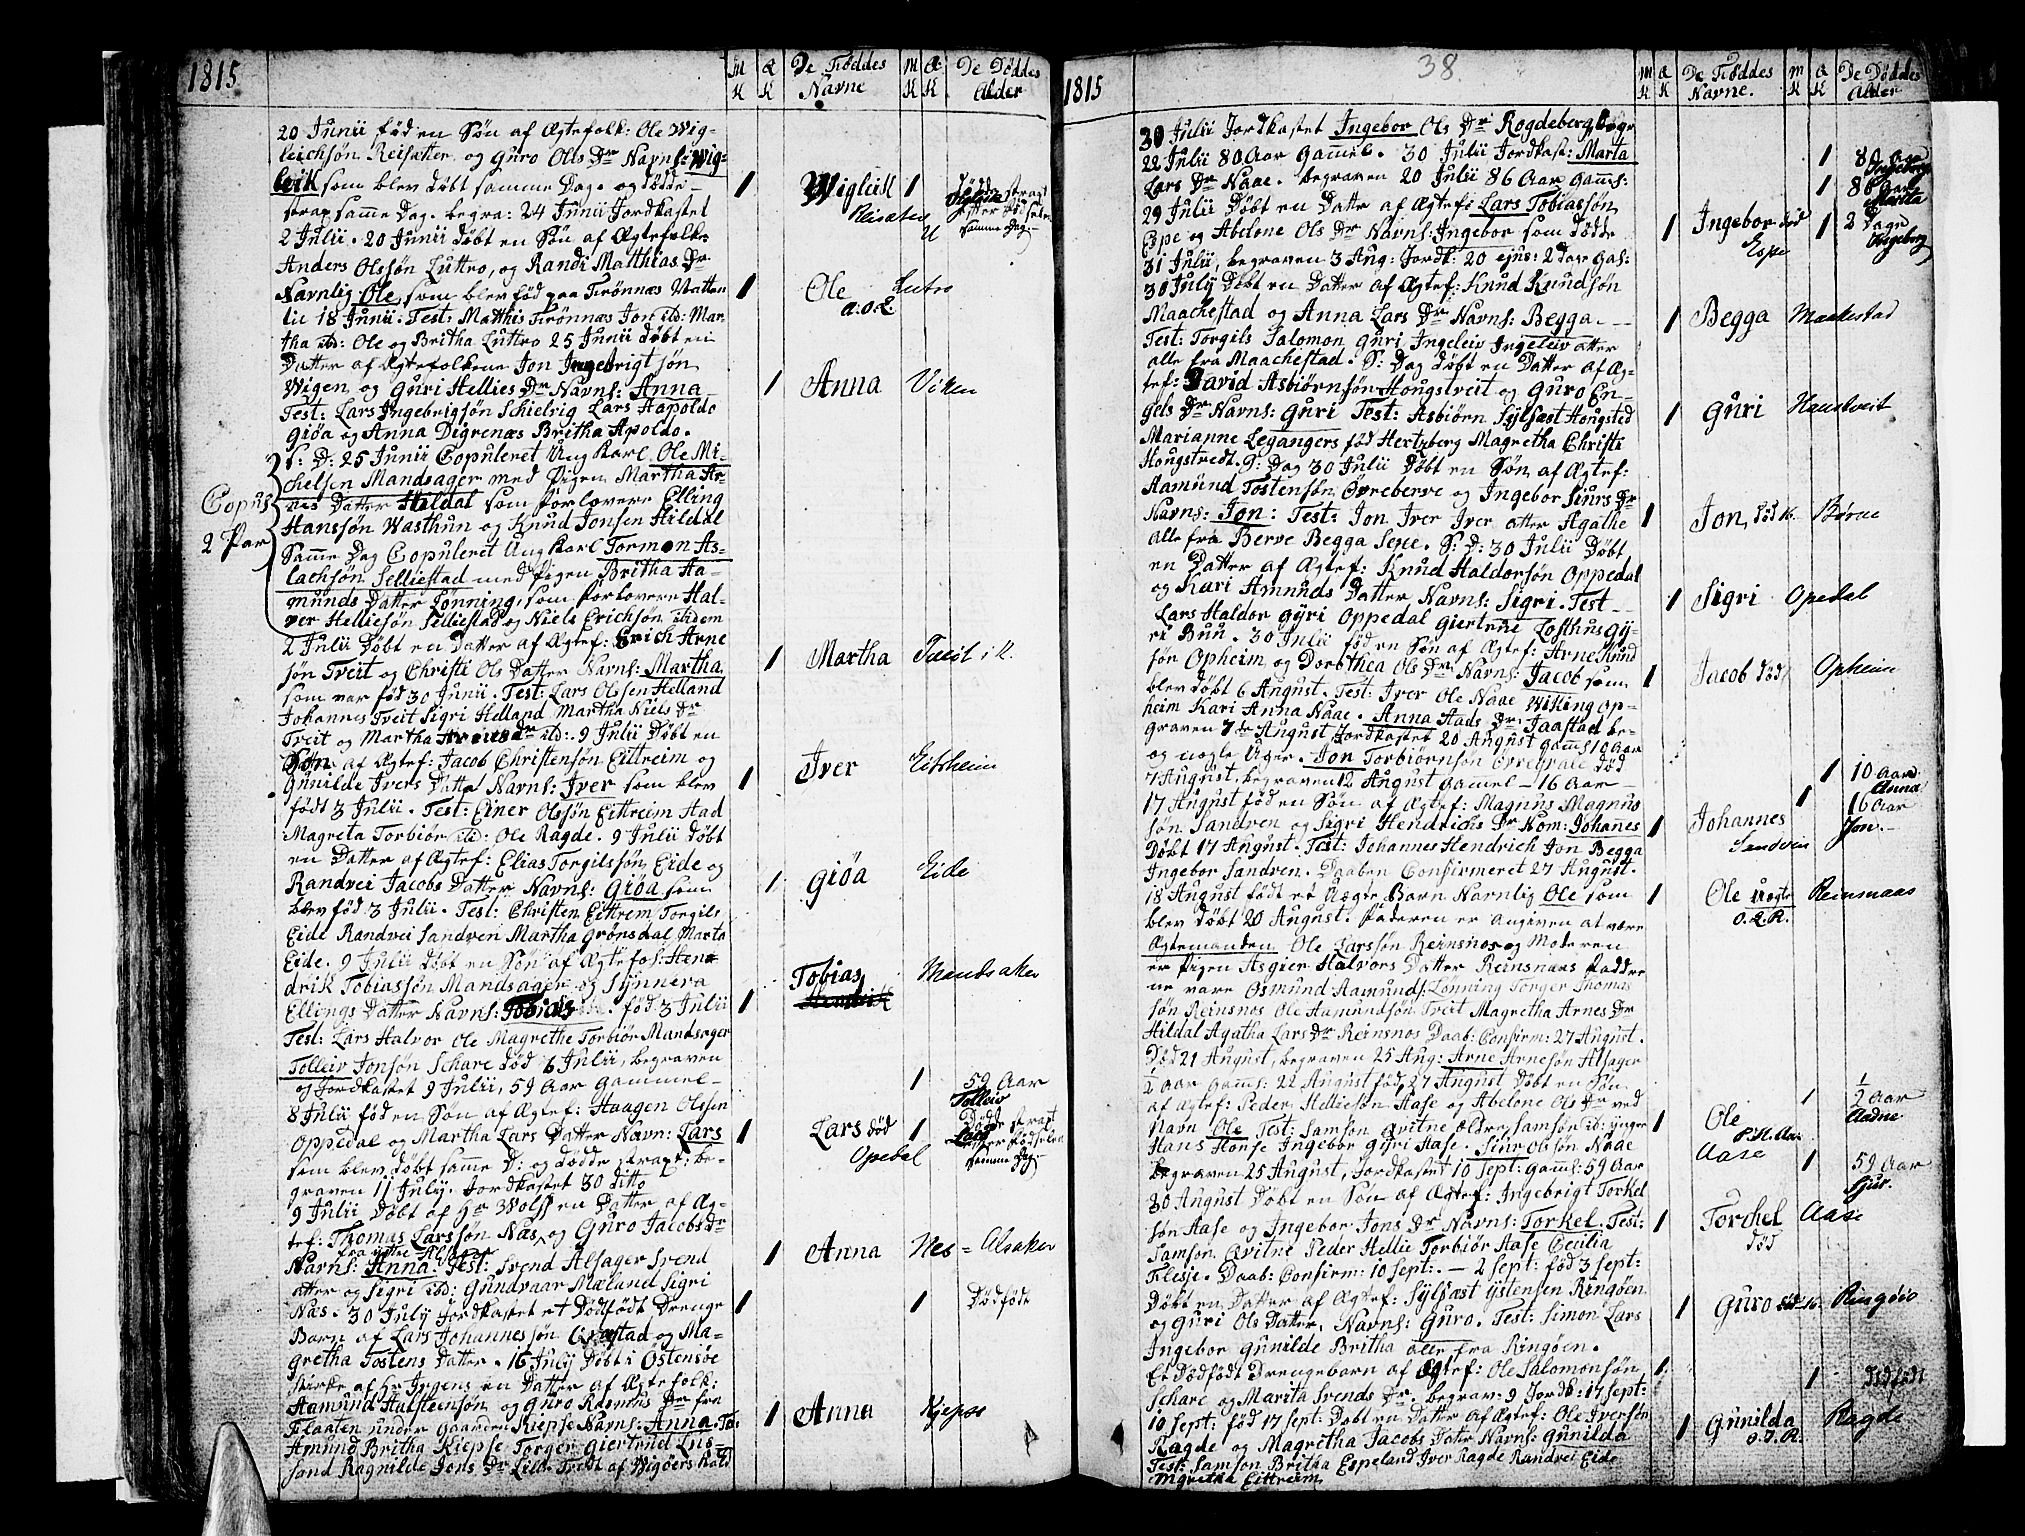 1815
M K
Q K
De Fiøddes Navne
M K
Q K
De Døddes Alder
20 Junii fød en Søn af Ægtefolk: Ole Wig-
leichsøn Reisæter og Guro Ols Dr Navns: Wig-
leik som blev døbt samme Dag. og dødde
strax samme Dag. begra: 24 Junii Jordkastet
2 Julii. 20 Junii døbt en Søn af Ægtefolk:
Anders Olssøn Luttro, og Randi Matthias Dr
Navnlig Ole, som blev fød paa Trønnæs Natten
til 18 Junii. Test: Matthis Trønnæs Jon itd: Mar-
tha itd: Ole og Britha Luttro 25 Junii døbt en
Datter af Ægtefolkene Jon Ingebrigtsøn
Wigen og Guri Hellies Dr Navns: Anna
Test: Lars Ingebrigsøn Schielvig Lars Hapoldo
Giøa og Anna Digrenæs Britha Apoldo.
S: D: 25 Junii Copuleret Ung Karl Ole Mi-
chelsen Mandsager med Pigen Martha Ar-
nes Datter Hildal som Forlovere Elling
Hanssøn Wasthun og Knud Jonsen Hildal
Samme Dag Copuleret Ung Karl Tormon As-
lachsøn Selliestad med Pigen Britha Aa-
munds Datter Lønning, som Forlovere Hal-
ver Helliesøn Selliestad og Niels Erichsøn itidem
2 Julii Døbt en Datter af Ægtef: Erich Arne
søn Treit og Christi Ols Datter Navns: Martha
som var fød 30 Junii. Test: Lars Olssen Helland
Johannes Treit Sigri Helland Martha Niels Dr
Treit og Martha Dr itd: 9 Julii Døbt en
Søn af Ægtef: Jacob Christensøn Eittreim og
Gunilde Ivers Datter Navns: Iver som blev
født 3 Julii. Test: Einer Olssøn Eittreim Aad
Magreta Torbiør itd: Ole Ragde. 9 Julii Døbt
en Datter af Ægtef: Elias Torgilssøn Eide og
Randvei Jacobs Datter Navns: Giøa som
blev fød 3 Julii. Test: Christen Eittrem Torgils
Eide Randvei Sandven Martha Grønsdal Marta
Eide. 9 Julii døbt en Søn af Ægtefol: Hen-
drik Tobiassøn Mandsager og Synnera
Ellings Datter Navns: Tobias. fød 3 Julii
Test: Lars Halvor Ole Magrethe Torbiør Mandsager
Tolleiv Jonsøn Schare død 6 Julii, begraven
og Jordkastet 9 Julii, 59 Aar Gammel
8 Julii fød en Søn af Ægtef: Haagen Olssen
Oppedal og Martha Lars Datter Navn: Lars
som blev døbt samme D: og dødde strax: be-
graven 11 July. Jordkastet 30 ditto
9 Julii Døbt af Hr Wolff en Datter af Æg-
tef: Thomas Larssøn Nas og Guro Jacobs dr
fra yttre Alsager
Navns: Anna. Test: Svend Alsager Svend
atter og Sigri itd: Gundvaar Mæland Sigri
Nas. 30 July Jordkastet et Dødfødt Drenge
Barn af Lars Johannessøn og Ma-
gretha Tostens Datter. 16 July Døbt i Østensøe
Kirke af Hr Irgens en Datter af Ægtefolk:
Aamund Halsteensøn og Guro Rasmus Dr fra
Flaaten under Gaarden Kiepse Navns: Anna. Te:
Amund Britha Kiepse Torger Giertrud Lus-
sand Ragnilde Jons Dr Lill Tredt af Wigøers Kold
Copus
2 Par
1 Wigleik 1
Reisæter
1 Ole Lutro
a.o.L.
1 Anna Viken
1 Martha Tveit i K.
1 Iver Eitrheim
1 Giøa Eide
1 Tobias Mandsaker
1 59 Aar
Tolleiv
1 Lars død 1
Opedal
1 Anna Nes = Alsaker
1 1 Dødfødt
1 Anna Kjepso
1815
38.
M K
Q K
De Fiøddes Navne.
M K
Q K
De Døddes Alder
30 Julii Jordkastet Ingebor Ols Dr Rogdeberg, begr
22 Julii 80 Aar Gammel. 30 Julii Jordkast: Marta
Lars Dr Naae. begraven 20 Julii 86 Aar Gamls:
29 Julii Døbt en Datter af Ægtefs Lars Tobiassøn
Espe og Abelone Ols Dr Navns: Ingebor som dødde
31 Julii, begraven 3 Aug: Jordk: 20 ejus: 2 Dage Gal:
30 July Døbt en Datter af Ægtef: Knud Knudsøn
Maachestad og Anna Lars Dr Navns: Begga.
Test: Torgils Salomon Guri Ingeleiv Ingeleiv atter
alle fra Maachestad. S: Dag døbt en Datter af Æg-
tef: David Asbiørnsøn Hougstveit og Guro En-
gels Dr Navns: Guri Test: Asbiørn Sylfæst Hougsted
Marianne Legangers fød Hertzberg Magretha Christi
Hougstvedt. S: Dag 30 Julii Døbt en Søn af Ægtef:
Aamund Tostensøn Øvreberve og Ingebor Siurs Dr
Navns: Jon: Test: Jon Iver Iver atter Agathe
alle fra Berve Begga Sexe. S: D: 30 Julii Døbt
en Datter af Ægtef: Knud Haldorsøn Oppedal
og Kari Amunds Datter Navns: Sigri. Test
Lars Haldor Gyri Oppedal Giertrue Lofthus Gy-
ri Buu. 30 Julii fød en Søn af Ægtef: Arne Knud
søn Opheim og Dorothea Ols Dr Navns: Jacob som
blev døbt 6 August. Test: Iver Ole Naae Wiking Op-
heim Kari Anna Naae. Anna Aads Dr Jaastad be-
graven 7de August, Jordkastet 20 August Gamls 10 Aar
og nogle Uger. Jon Torbiørnsøn død
7 August, begraven 12 August Gammel - 16 Aar
17 August fød en Søn af Ægtef: Magnus Magnus
søn Sandven og Sigri Hendrichs Dr Nom: Johannes
Døbt 17 August. Test: Johannes Hendrich Jon Begga
Ingebor Sandven. Daaben Confirmeret 27 August.
18 August født et Uægte Barn Navnlig Ole som
blev døbt 20 August. Faderen er angiven at være
Ægtemanden Ole Larssøn Reinsnos og Moderen
er Pigen Asgier Halvors Datter Reinsnæs Faddre
ne vare Osmund Aamunds: Lønning Torger Thomas
søn Reinsnos Ole Aamundsøn Treit Magretha Arnes Dr
Hildal Agatha Lars Dr Reinsnos Daab: Confirm: 27 August.
Død 21 August, begraven 25 Aug: Arne Arnesøn Alsager
½ Aar Gamls: 22 August fød, 27 August Døbt en Søn
af Ægtef: Peder Helliesøn Aase og Abelone Ols Dr ved
Navn Ole Test: Samson Qvitne Eldre, Samson itd: ynger
Hans Honse Ingebor Gyri Aase. Siur Olssøn Naae
begraven 25 August, Jordkastet 10 Sept: Gamls: 59 Aar
30 August Døbt en Søn af Ægtef: Ingebrigt Torkel
søn Aase og Ingebor Jons Dr Navns: Torkel. Test:
Samson Qvitne Peder Hellie Torbiør Aase Cecilia
Flesje. Daab: Confirm: 10 Sept: - 2 Sept: fød 3 Sept:
Døbt en Datter af Ægtef: Sylfæst Ystensen Ringøen
og Guri Ols Datter, Navns: Guro. Test: Simon Lars
Ingebor Gunilde Britha alle fra Ringøen.
Et Dødfødt Drengebarn af Ægtef: Ole Salomonsøn
Schare og Marita Svends Dr. begrav: 9 Jordk: 17 Sept:
10 Sept: fød 17 Sept: Døbt en Datter af Ægtef: Ole Iversøn
Ragde og Magretha Jacobs Dater Navns: Gunilda
Test: Samson Britha Espeland Iver Ragde Randvei Eide
Magretha Eittreim
1 80 Aar
Ingeborg
1 86 Aar
Marita
1 Ingebor død 1 2 Dage
Espe Ingeborg
1 Begga Maakestad
1 Guri Haustveit
1 Jon, død 16. Børve
1 Sigri Opedal
1 Jacob død Opheim
1 10 Aar
Anna
1 16 Aar
Jon.
1 Johannes
Sandvin
1 Ole Uægte Reinsnaas
O.L.R.
1 ½ Aar
Aadne
1 Ole
P.H. Aa.
Aase
1 59 Aar
Sjur.
1 Torchel Aase
død
1 Guro død 16. Ringøio
1 1 Dødfødt
1 Gunilda Ragde
O.I.R.